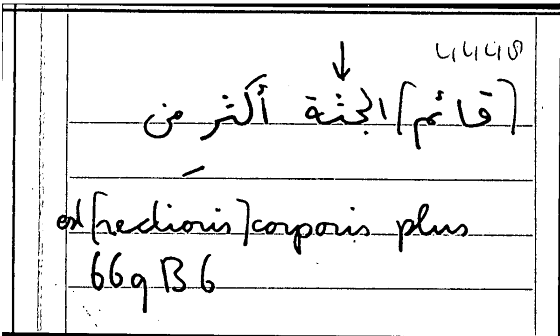 4448
[قائم] الجثة أكثر من
est [rectioris] corporis plus
669 B 6